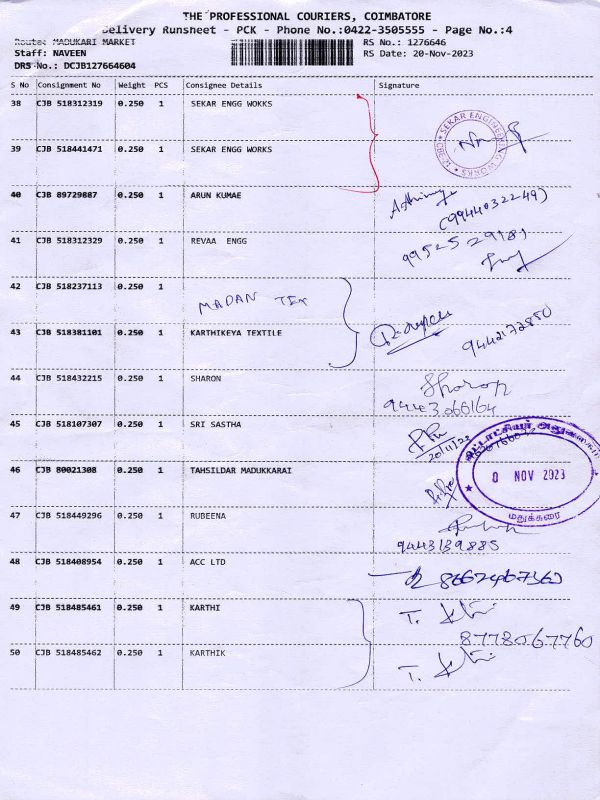 THE PROFESSIONAL COURIERS, COIMBATORE
Delivery Runsheet - PCK - Phone No.:0422-3505555 - Page No.:4
Route: MADUKARI MARKET RS No.: 1276646
Staff: NAVEEN RS Date: 20-Nov-2023
DRS No.: DCJB127664604
S No Consignment No Weight PCS Consignee Details Signature
38 CJB 518312319 0.250 1 SEKAR ENGG WOKKS
SEKAR ENGINEERING WORKS
39 CJB 518441471 0.250 1 SEKAR ENGG WORKS
40 CJB 89729887 0.250 1 ARUN KUMAE
(9944032249)
41 CJB 518312329 0.250 1 REVAA ENGG 9952529181
42 CJB 518237113 0.250 1 MADAN TEX
43 CJB 518381101 0.250 1 KARTHIKEYA TEXTILE 9442172850
44 CJB 518432215 0.250 1 SHARON Sharon
94443066164
45 CJB 518107307 0.250 1 SRI SASTHA
20/11/23
46 CJB 80021308 0.250 1 TAHSILDAR MADUKKARAI
வட்டாட்சியர் அலுவலகம்
0 NOV 2023
மதுக்கரை
47 CJB 518449296 0.250 1 RUBEENA
9443139885
48 CJB 518408954 0.250 1 ACC LTD 8662467360
49 CJB 518485461 0.250 1 KARTHI
8778067760
50 CJB 518485462 0.250 1 KARTHIK